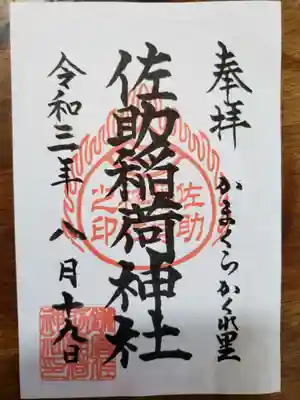 奉拝
かまくらかくれ里
佐助稲荷神社
佐助
之印
令和三年八月十九日